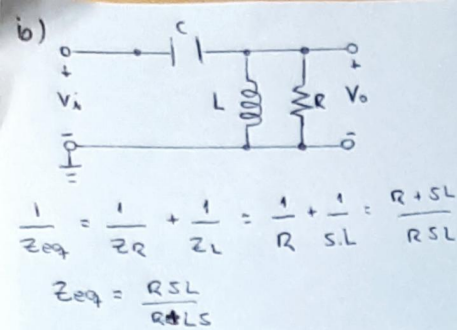 b)
C
+ +
Vi L R Vo
- -
1/Zeq = 1/ZR + 1/ZL = 1/R + 1/S.L = R + SL/RSL
Zeq = RSL/R+LS